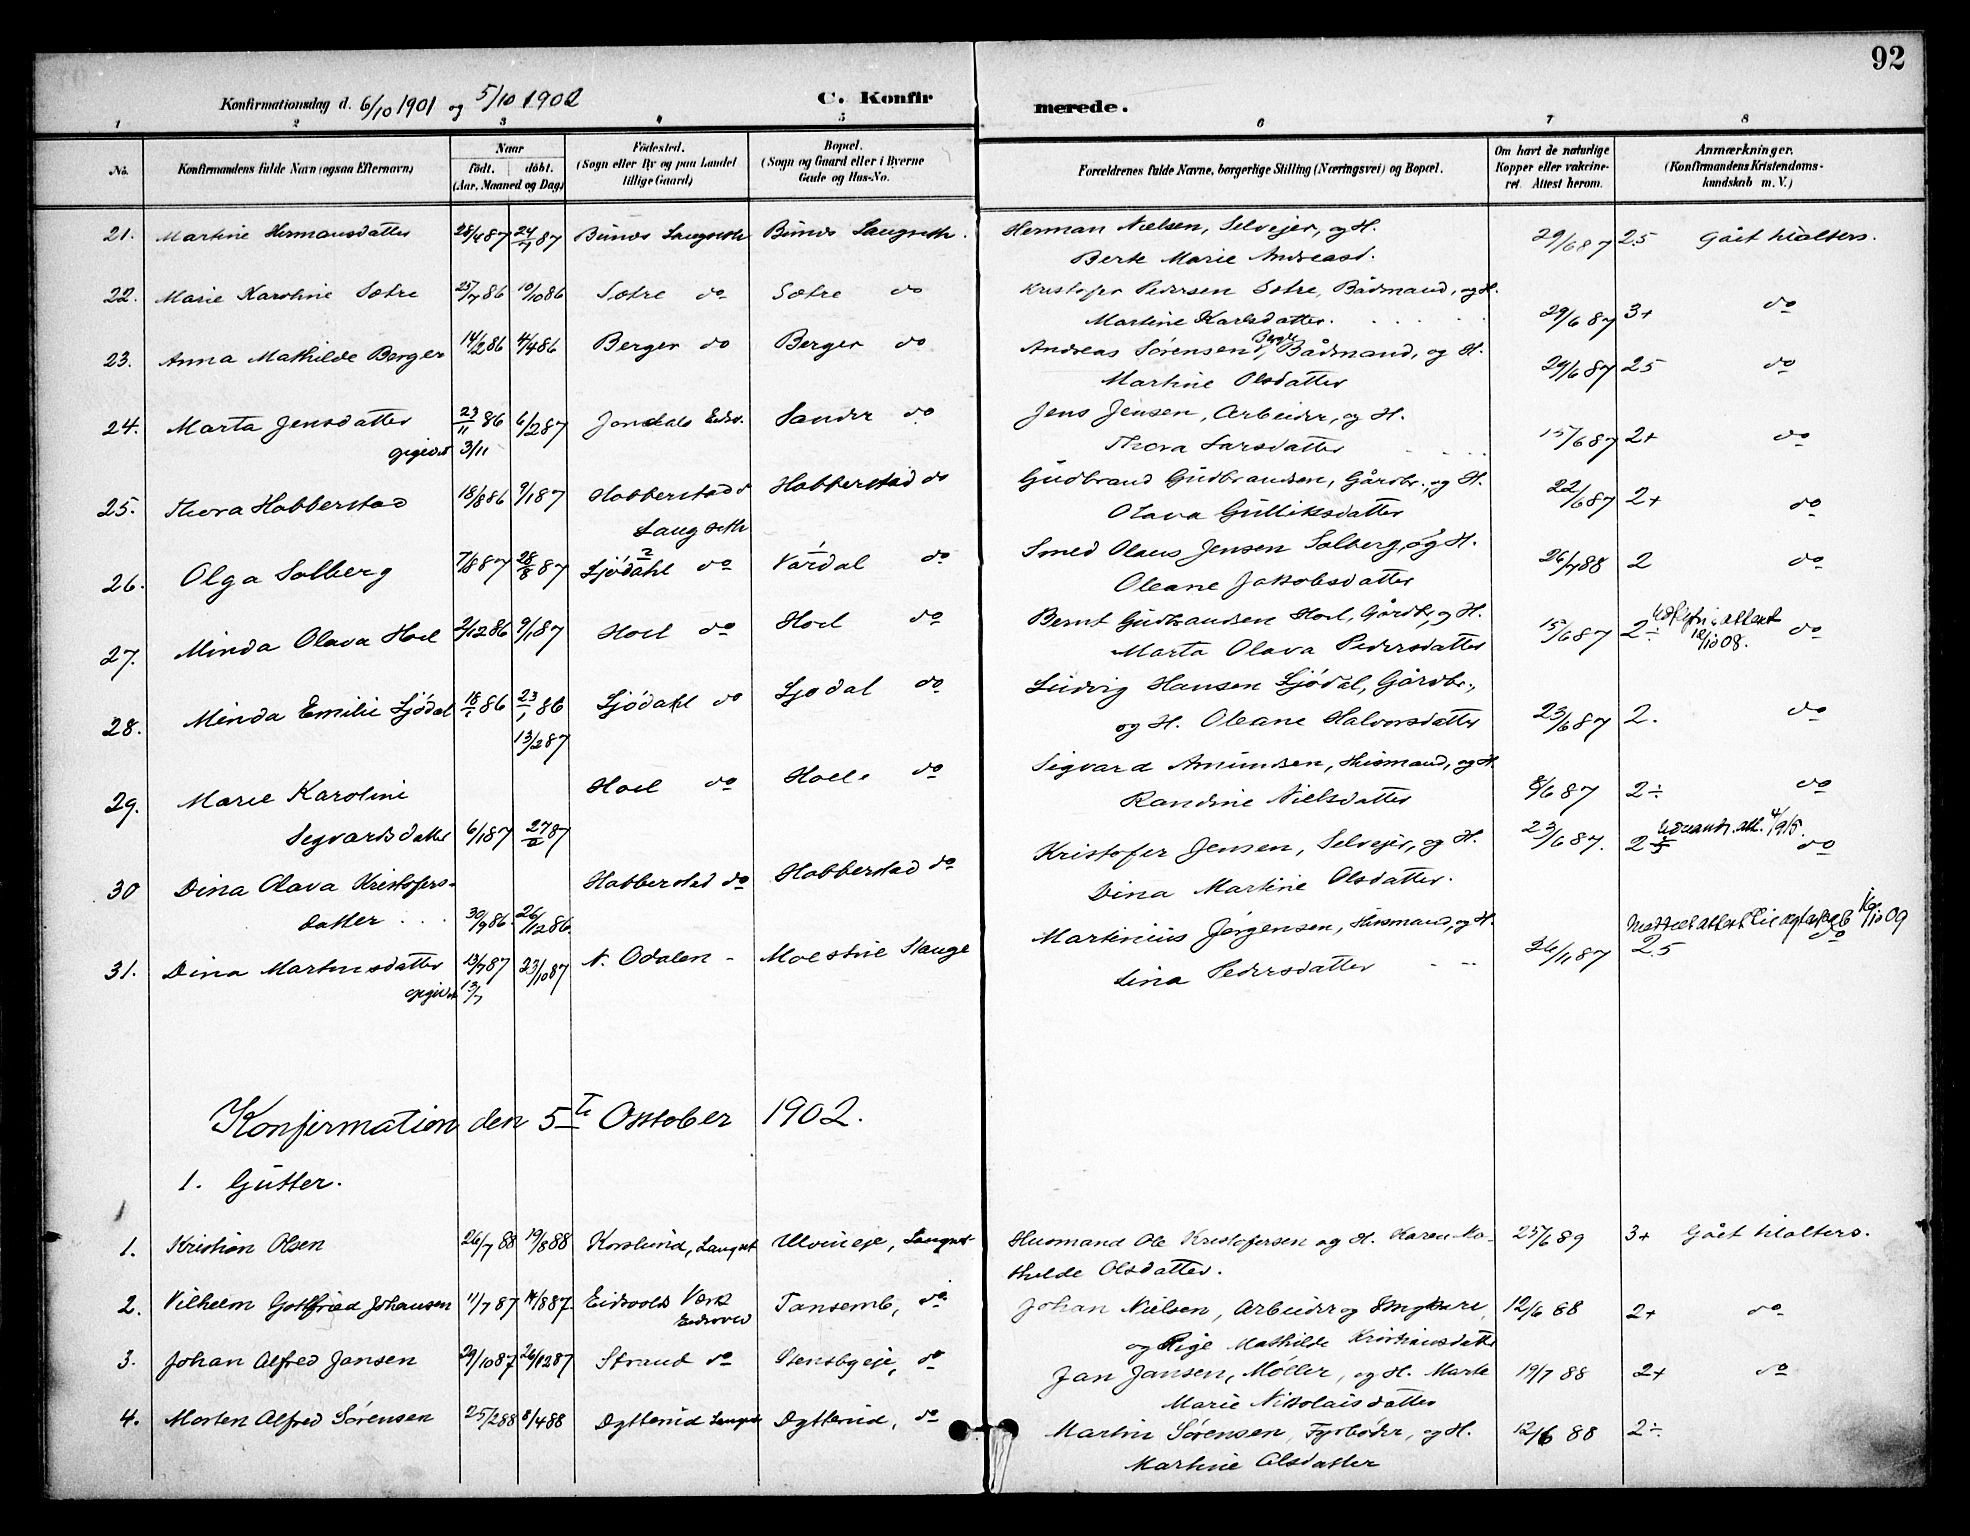 92
Konfirmationsdag d. 6/10 1901 og 5/10 1902 C. Konfirmerede.
1 2 3 4 5 6 7 8
No. Konfirmandens fulde Navn (ogsaa Efternavn) Naar født. døbt. (Aar, Maaned og Dag) Födested. (Sogn eller By og paa Landet tillige Gaard) Bopæl. (Sogn og Gaard eller i Byerne Gade og Hus-No. Forældrenes fulde Navne, borgerlige Stilling (Næringsvei) og Bopæl. Om havt de naturlige Kopper eller vakcineret. Attest herom. Anmærkninger. (Konfirmandens Kristendomskundskab m. V.)
21. Martine Hermansdatter 28/4 87 24/7 87 Bunes Langseth Bunes Langseth. Herman Nielsen, Selvejer, og H. 29/6 87 2.5 Gået til alters.
Berte Marie Andreasd.
22. Marie Karoline Sætre 25/7 86 10/10 86 Sætre do Sætre do Kristofer Pedersen Sætre, Bådmand, og H.
Martine Karlsdatter. 29/6 87 3+ do
23. Anna Mathilde Berger 14/2 86 4/4 86 Berger do Berger do Andreas Sørensen Berger, Bådmand, og H. 29/6 87 25 do
Martine Olsdatter
24. Marta Jensdatter 23/11 86 6/2 87 Jøndals Eidsv. Sander do Jens Jensen, Arbeider, og H.
opgivet 3/11 Thora Larsdatter 15/6 87 2+ do
25. Thora Habberstad 18/8 86 9/1 87 Habberstad Habberstad do Gudbrand Gudbrandsen, Gårdbr., og H. 22/6 87 2+ do
Langseth Olava Gulliksdatter
26. Olga Solberg 7/8 87 28/8 87 Ljödahl do Vårdal do Smed Olaus Jensen Solberg, og H. 26/7 88 2 do
Oleane Jakobsdatter
27. Minda Olava Hoel 2/12 86 9/1 87 Hoel do Hoel do Bernt Gudbrandsen Hoel, Gårdbr., og H. 15/6 87 2÷ Udflytn.attest 12/10 08. do
Marta Olava Pedersdatter
28. Minda Emilie Ljödal 18/1 86 23/1 86 Ljödahl do Ljødal do Ludvig Hansen Ljödal, Gårdbr.,
13/2 87 og H. Oleane Halvorsdatter 23/6 87 2. do
29. Marie Karoline Hoel do Hoel. do Sigvard Amundsen, Husmand, og H.
Segvardsdatter 6/1 87 27/2 87 Randine Nielsdatter 8/6 87 2÷ do
30 Dina Olava Kristofers- Habberstad do Habberstad do Kristofer Jensen, Selvejer, og H. 23/6 87. 2 Udvandr.att. 4/9 15. do
datter 30/9 86. 26/12 86. Dina Martine Olsdatter.
31. Dina Martinsdatter 13/7 87 23/10 87 N. Odalen - Moestue Hauge Martinius Jørgensen, Husmand, og H. 26/11 87 2.5 do
opgivet 13/7 Lina Pedersdatter
Konfirmation den 5te Oktober 1902.
1. Gutter.
1. Kristian Olsen 26/7 88 19/8 88 Korslund, Langset Ulvineje, Langset Husmand Ole Kristofersen og H. Karen Ma- 25/6 89 3+ Gået til alters.
thilde Olsdatter.
2. Vilhelm Gottfried Johansen 11/7 87 14/8 87. Eidsvolds Værk Eidsvold Tansemb, do Johan Nielsen, Arbeider og 12/6 88 2+ do
og Pige Mathilde Kristiansdatter
3. Johan Alfred Jansen 29/10 87 26/12 87 Strand do Stensbyeje, do Jan Jansen, Møller, og H. Marte 19/7 88 2+ do
Marie Nikolaisdatter
4. Morten Alfred Sørensen 25/2 88 8/4 88 Dytterud Langset Dytterud, do Martin Sørensen, Fyrbøder, og H. 12/6 88 2÷
Martine Olsdatter